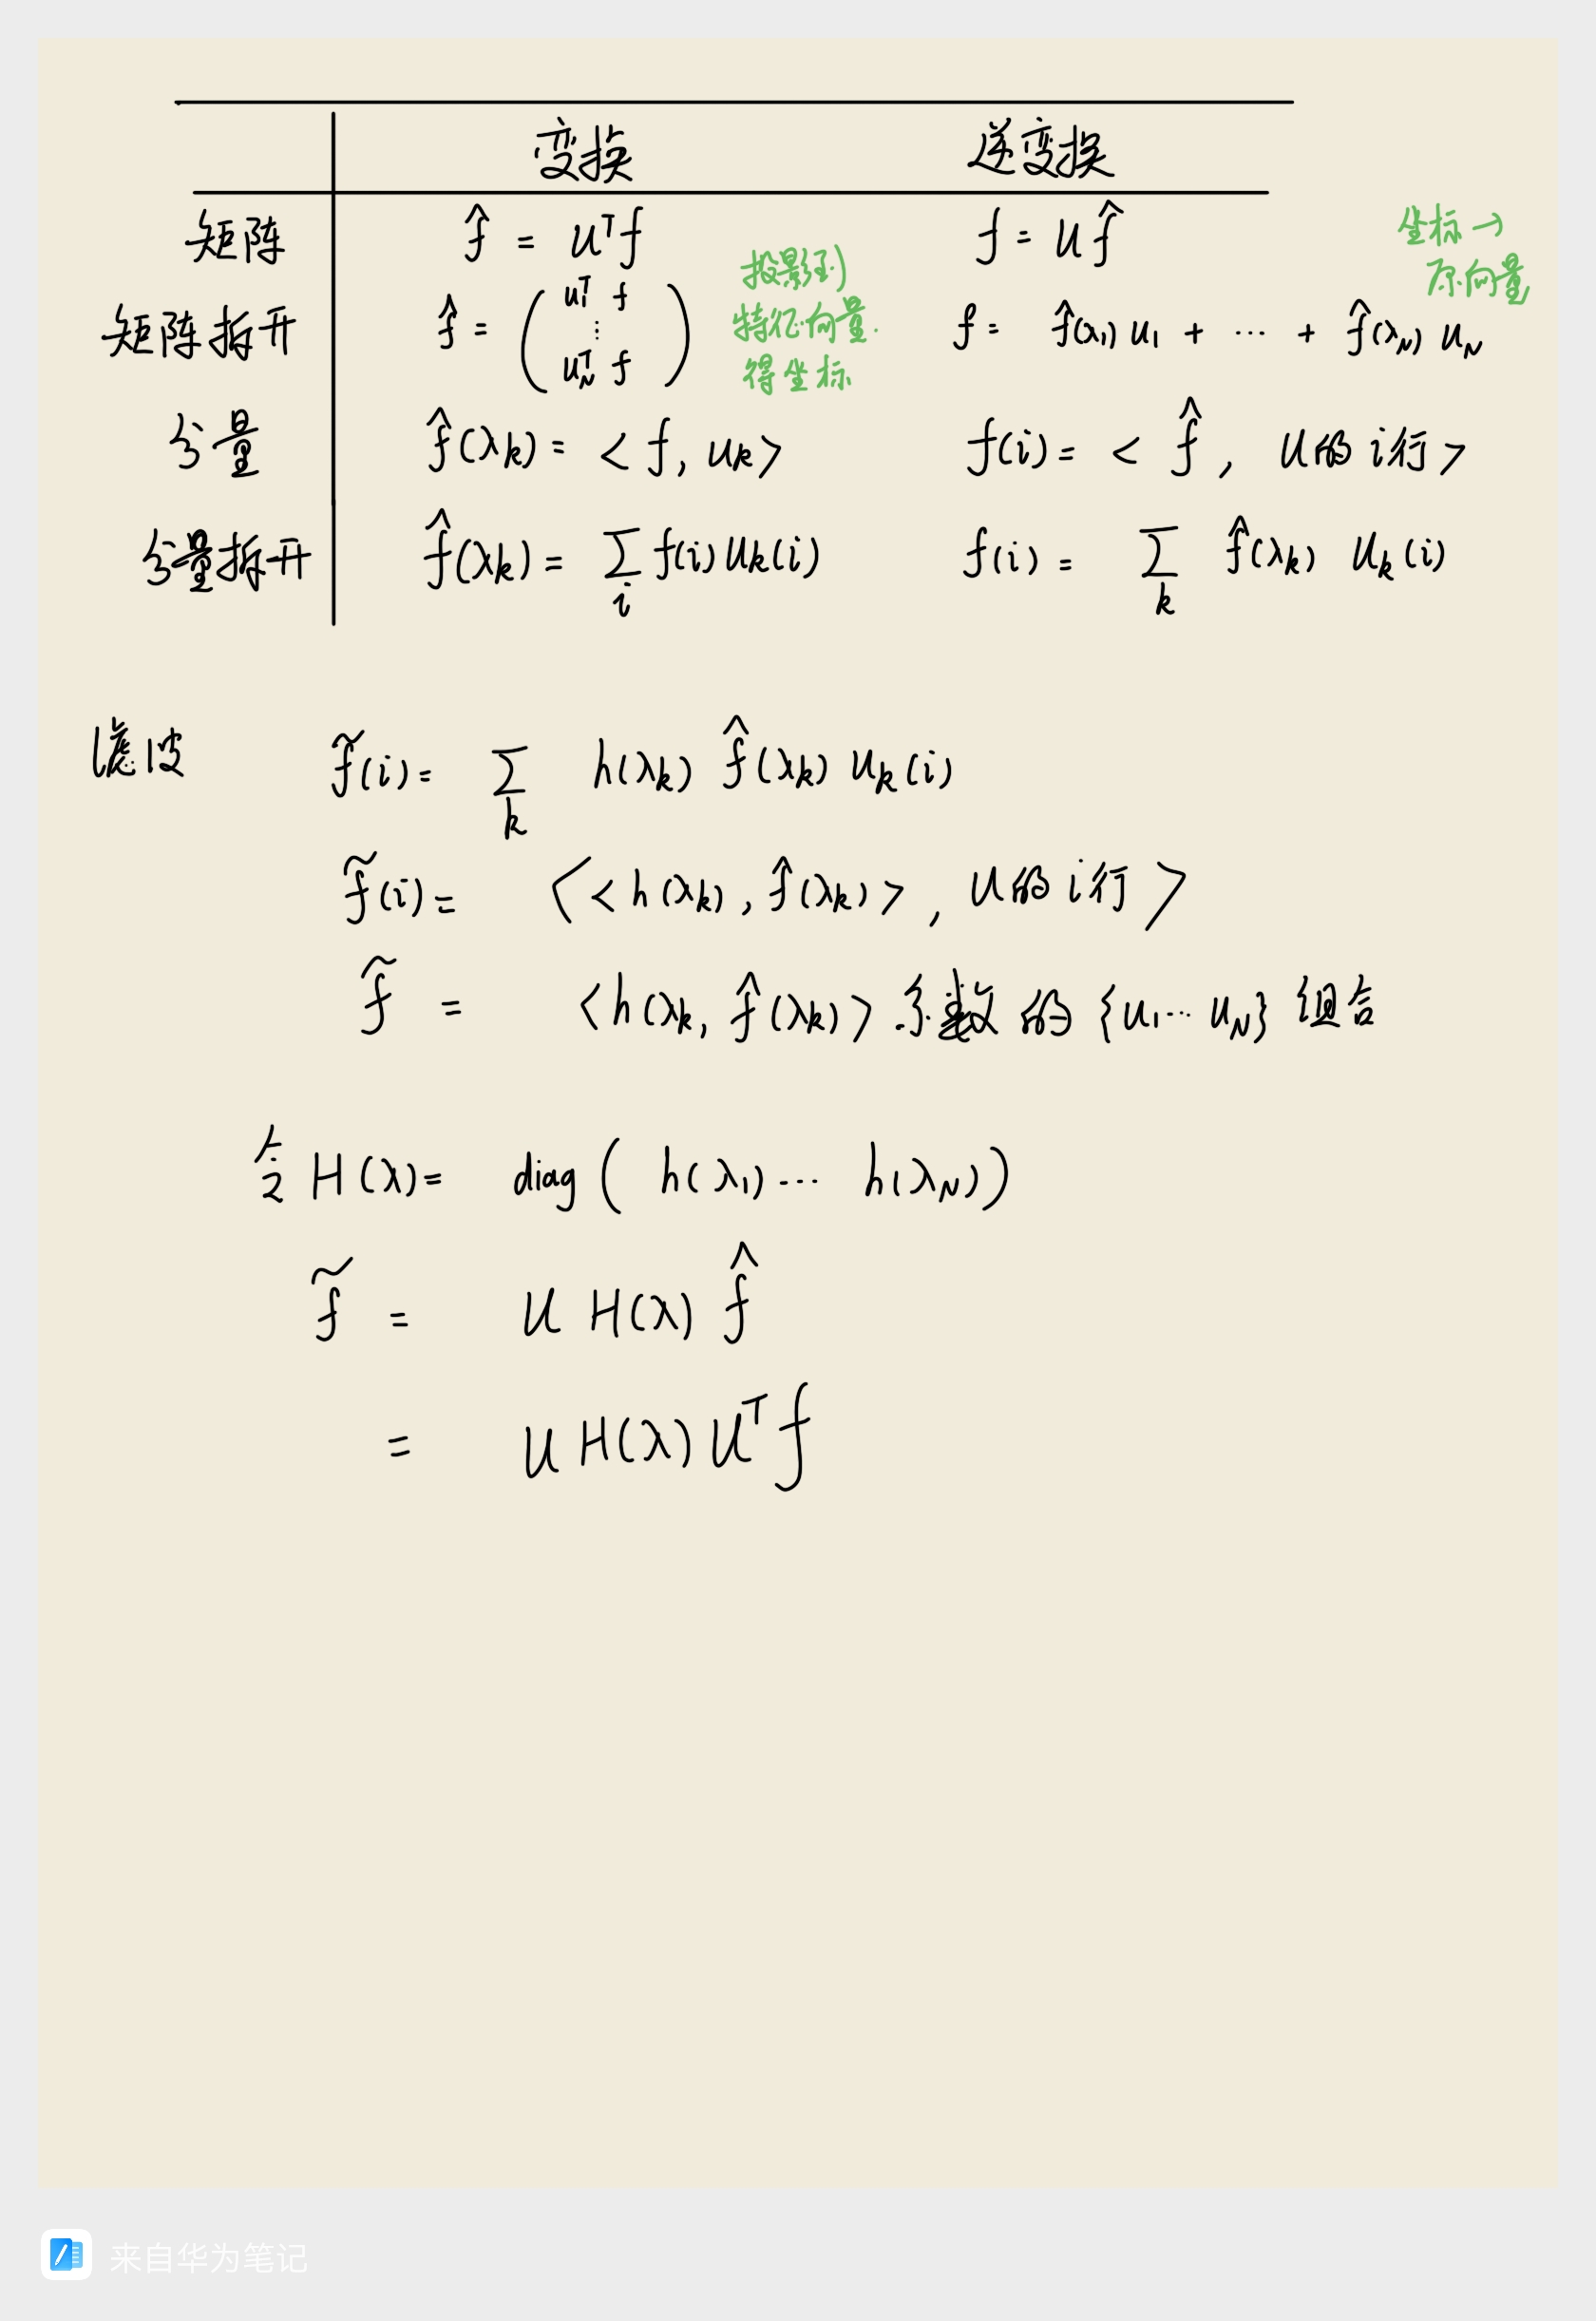 变换 逆变换
矩阵 f̂ = Uᵀf f = U f̂
坐标→
原向量
投影到
特征向量.
得坐标
矩阵拆开 f̂ = ( u₁ᵀ f ⋮ u_Nᵀ f ) f = f̂(λ₁) u₁ + ⋯ + f̂(λ_N) u_N
分量 f̂(λₖ) = <f, uₖ> f(i) = < f̂, U的i行>
分量拆开 f̂(λₖ) = ∑_i f(i) uₖ(i) f(i) = ∑_k f̂(λₖ) uₖ(i)
滤波 f̃(i) = ∑_k h(λₖ) f̂(λₖ) uₖ(i)
f̃(i) = < <h(λₖ), f̂(λₖ)>, U的i行 >
f̃ = <h(λₖ, f̂(λₖ)>系数的{u₁⋯u_N}组合
令 H(λ) = diag( h(λ₁)⋯ h(λ_N))
f̃ = U H(λ) f̂
= U H(λ) Uᵀ f
来自华为笔记